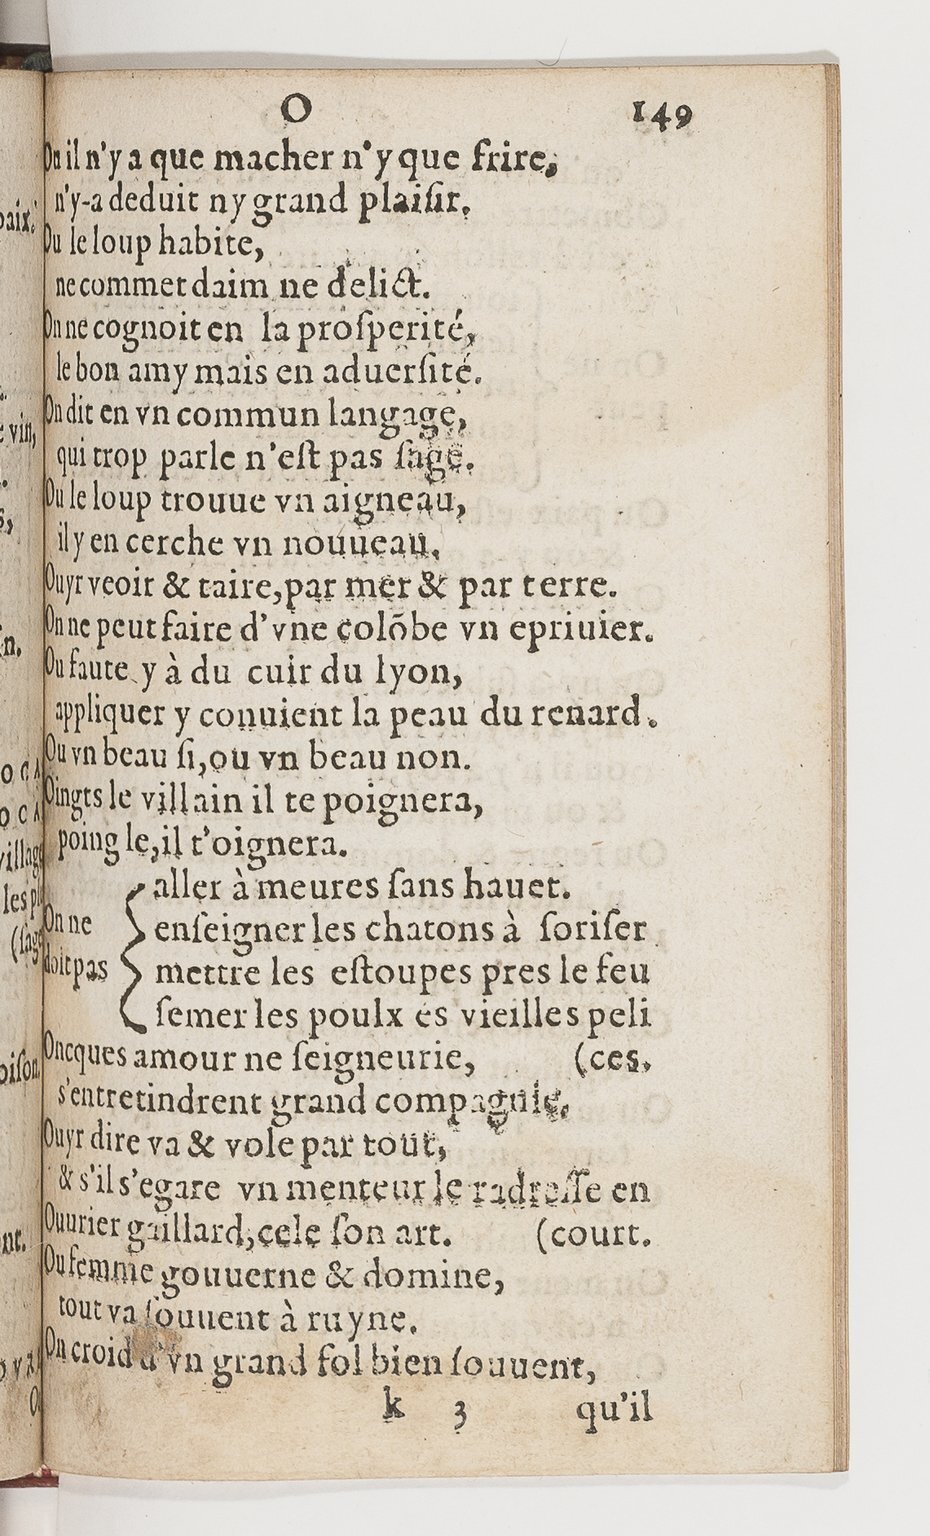 O 149
On il n'y a que macher n'y que frire,
n'y-a deduit ny grand plaiſir.
Ou le loup habite,
ne commet daim ne delict.
On ne cognoit en la proſperité,
le bon amy mais en aduerſité.
On dit en vn commun langage,
qui trop parle n'eſt pas ſage.
Ou le loup trouue vn aigneau,
il y en cerche vn nouueau.
Ouyr veoir & taire, par mer & par terre.
On ne peut faire d'vne colõbe vn epriuier.
Ou faute y à du cuir du lyon,
appliquer y conuient la peau du renard.
Ou vn beau ſi, ou vn beau non.
Oingts le villain il te poignera,
poing le, il t'oignera.
aller à meures ſans hauet.
On ne enſeigner les chatons à ſoriſer
doit pas mettre les eſtoupes pres le feu
ſemer les poulx es vieilles peli
Oncques amour ne ſeigneurie, (ces.
s'entretindrent grand compagnie.
Ouyr dire va & vole par tout,
& s'il s'egare vn menteur le radreſſe en
Ouurier gaillard, cele ſon art. (court.
Ou femme gouuerne & domine,
tout va ſouuent à ruyne.
On croid d'vn grand fol bien ſouuent,
k 3 qu'il